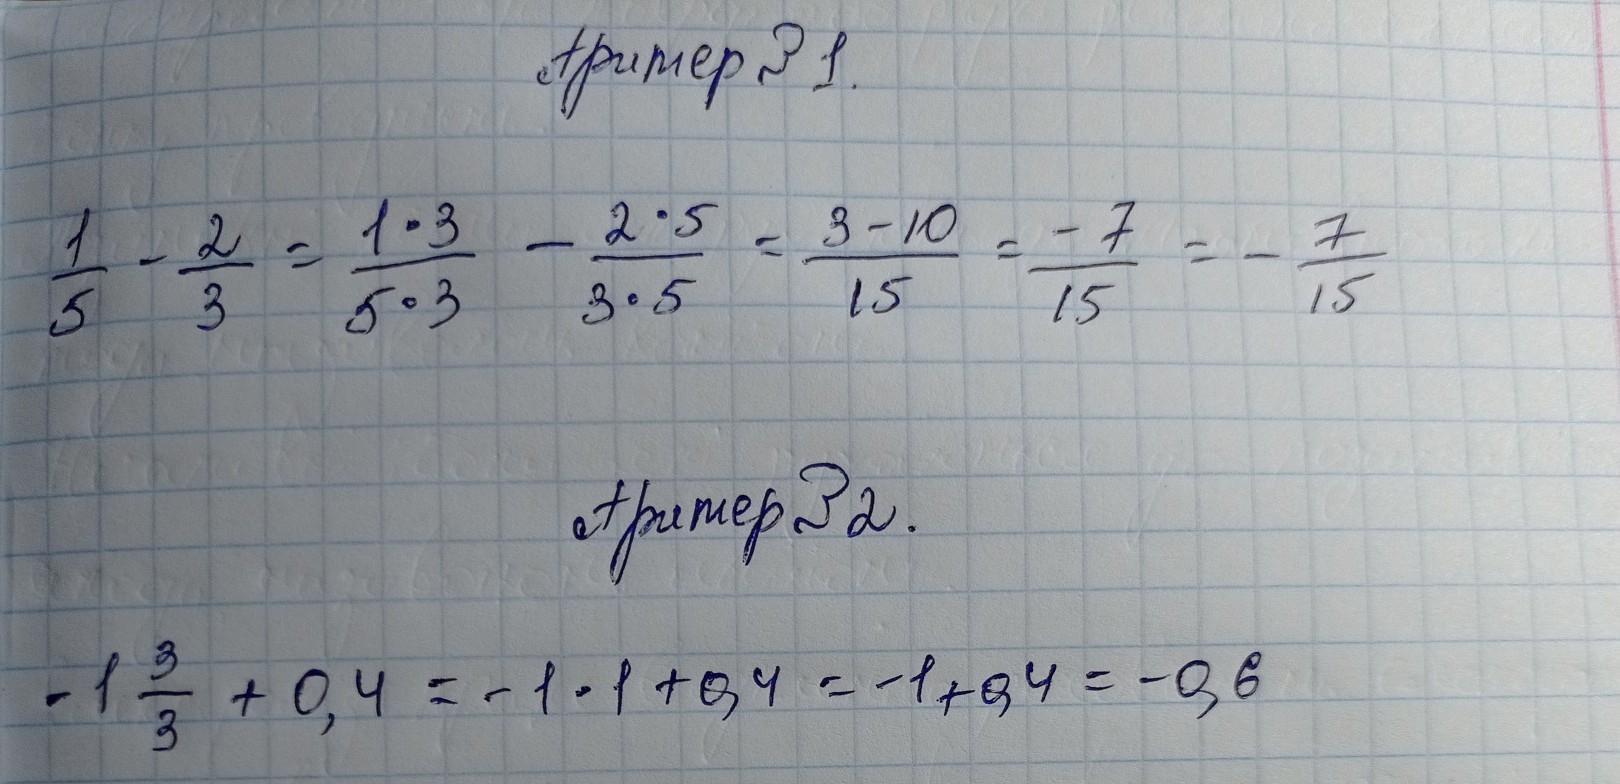 Пример 1.
1/5 - 2/3 = 1·3/5·3 - 2·5/3·5 = 3-10/15 = -7/15 = - 7/15
Пример 2.
-1 3/3 + 0,4 = -1·1+0,4 = -1+0,4 = -0,6